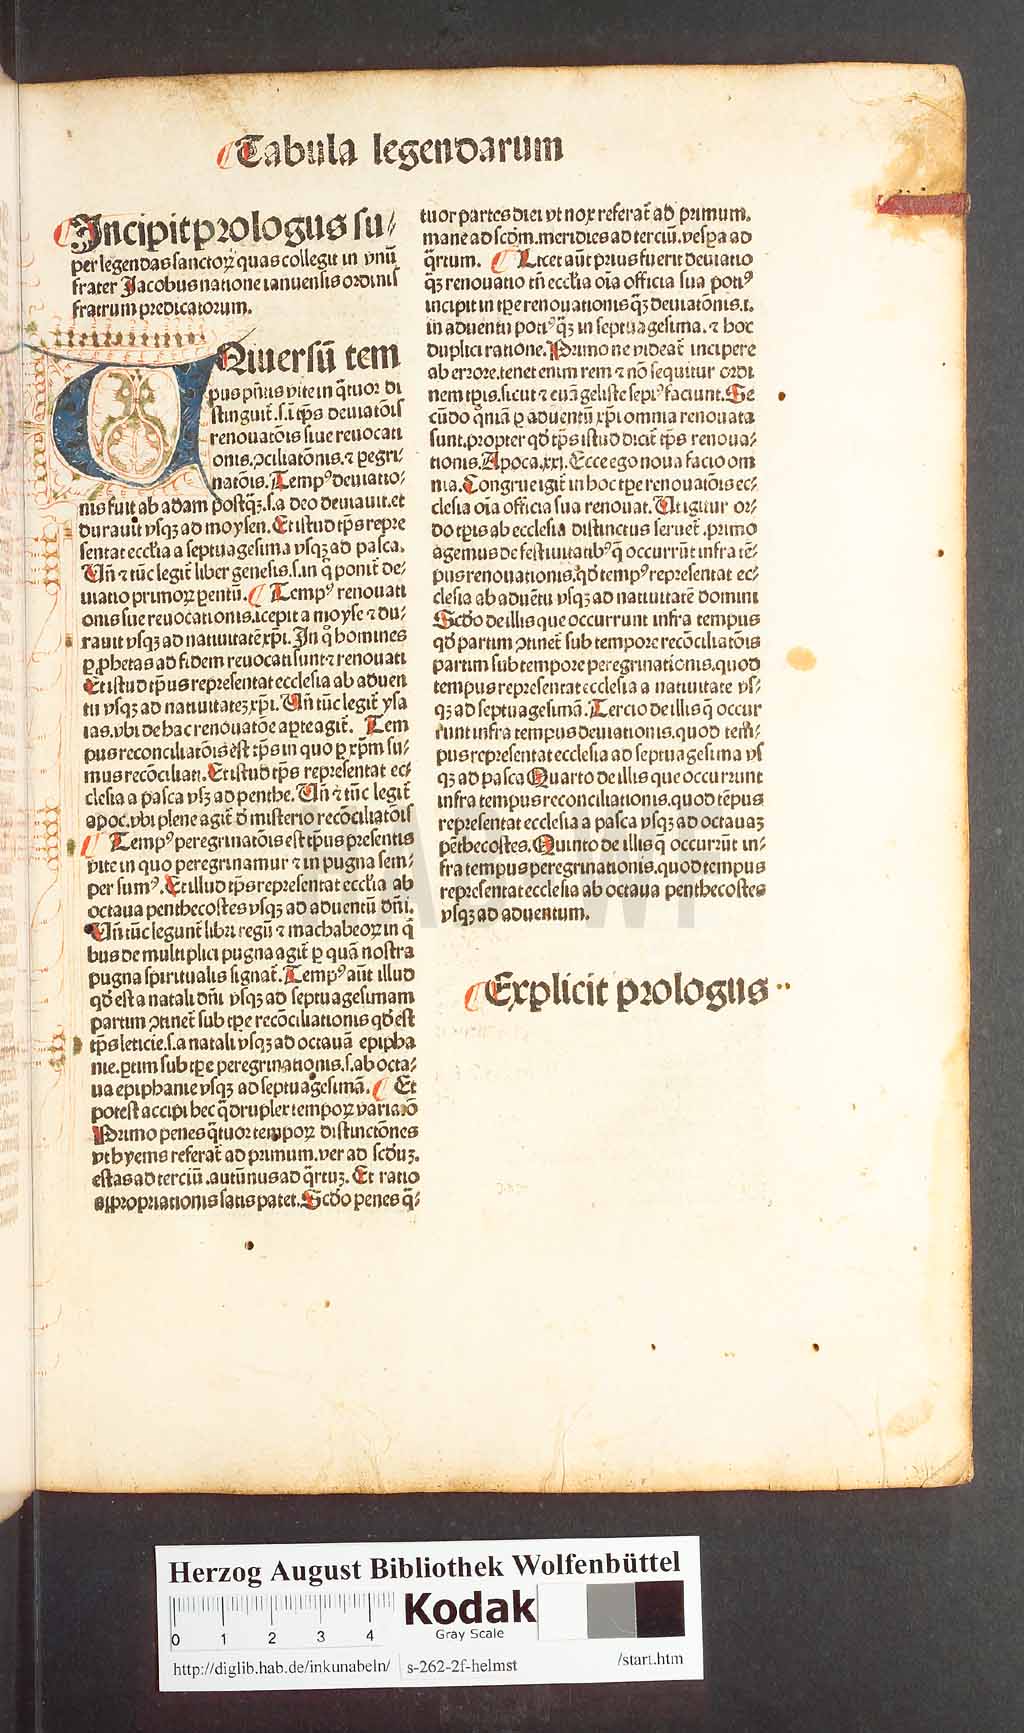 ¶Tabula legendarum
¶Incipit prologus su⸗
per legendas sanctoꝝ quas collegit in vnū
frater Jacobus natione ianuensis ordinis
fratrum predicatorum.
Uniuersū tem
pus pn̄tis vite in q̄tuor di
stinguit᷑.s.ī tp̄s deuiatōis
renouatōis siue reuocati
onis.ꝯciliatōnis.⁊ ꝑegri⸗
natōis.Tempꝰ deuiatio⸗
nis fuit ab adam postqꝫ.s.a deo deuiauit.et
durauit vsqꝫ ad moysen.Et istud tp̄s repre
sentat eccłia a septuagesima vsqꝫ ad pasca.
Un̄ ⁊ tūc legit᷑ liber genesis.s.in q̊ ponit᷑ de⸗
uiatio primoꝝ parentū.¶Tempꝰ renouati
onis siue reuocationis.īcepit a moyse ⁊ du⸗
rauit vsqꝫ ad natiuitatē xp̄i.In q̊ homines
ꝑ ꝓphetas ad fidem reuocati sunt ⁊ renouati
Et istud tp̄us representat ecclesia ab aduen
tu vsqꝫ ad natiuitateꝫ xp̄i.Un̄ tūc legit᷑ ysa
ias.vbi de hac renouatōe aꝑte agit᷑. Tem
pus reconciliatōis est tp̄s in quo ꝑ xp̄m su⸗
mus recōciliati.Et istud tp̄s representat ec⸗
clesia a pasca vsqꝫ ad penthe.Un̄ ⁊ tūc legit᷑
apoc.vbi plene agit᷑ d̄ misterio recōciliatōis
¶Tempꝰ peregrinatōis est tp̄us presentis
vite in quo peregrinamur ⁊ in pugna sem⸗
per sumꝰ.Et illud tp̄s representat eccłia ab
octaua penthecostes vsqꝫ ad aduentū dn̄i.
Un̄ tūc legunt᷑ libri regū ⁊ machabeoꝝ in q̄
bus de multiplici pugna agit᷑ ꝑ quā nostra
pugna spiritualis signat᷑.Tempꝰ aūt illud
qd̄ est a natali dn̄i vsqꝫ ad septuagesimam
partim ꝯtinet᷑ sub tp̄e recōciliationis qd̄ est
tp̄s leticie.s.a natali vsqꝫ ad octauā epipha
nie.ꝑtim sub tp̄e peregrinationis.s.ab octa⸗
ua epiphanie vsqꝫ ad septuagesimā.¶Et
potest accipi hec q̄druplex tempoꝝ variatō
Primo penes q̄tuor tempoꝝ distinctōnes
vt hyems referat᷑ ad primum.ver ad scd̄uꝫ.
estas ad terciū.autūnus ad q̄rtuꝫ.Et ratio
appropriationis satis patet.Scd̄o penes q̄⸗
tuor partes diei vt nox referat᷑ ad primum.
mane ad scd̄m.meridies ad terciū.vesꝑa ad
q̄rtum. ¶Licet aūt prius fuerit deuiatio
qꝫ renouatio tn̄ eccłia oīa officia sua potiꝰ
incipit in tp̄e renouationis qꝫ deuiatōnis.i.
in aduentu potiꝰ qꝫ in septuagesima.⁊ hoc
duplici ratione.Primo ne videat᷑ incipere
ab errore.tenet enim rem ⁊ nō sequitur ordi
nem tp̄is.sicut ⁊ euāgeliste sepiꝰ faciunt.Se
cūdo qm̄ia ꝑ aduentū xp̄i omnia renouata
sunt.propter qd̄ tp̄s istud dicit᷑ tp̄s renoua⸗
tionis.Apoca.xxi.Ecce ego noua facio om
nia.Congrue igit᷑ in hoc tp̄e renouatōis ec⸗
clesia oīa officia sua renouat.Ut igitur or⸗
do tp̄is ab ecclesia distinctus seruet᷑.primo
agemus de festiuitatibꝰ q̄ occurrūt infra tē⸗
pus renouationis.qd̄ tempꝰ representat ec⸗
clesia ab aduētu vsqꝫ ad natiuitatē domini
Scd̄o de illis que occurrunt infra tempus
qd̄ partim ꝯtinet᷑ sub tempore recōciliatōis
partim sub tempore peregrinationis.quod
tempus representat ecclesia a natiuitate vs⸗
qꝫ ad septuagesimā.Tercio de illis q̄ occur
runt infra tempus deuiationis.quod tem⸗
pus representat ecclesia ad septuagesima vs
qꝫ ad pasca Quarto de illis que occurrunt
infra tempus reconciliationis.quod tēpus
representat ecclesia a pasca vsqꝫ ad octauaꝫ
pēthecostes.Quinto de illis q̄ occurūt in⸗
fra tempus peregrinationis.quod tempus
representat ecclesia ab octaua penthecostes
vsqꝫ ad aduentum.
¶Explicit prologus
HAB WF
Herzog August Bibliothek Wolfenbüttel
0 1 2 3 4
Kodak
Gray Scale
http://diglib.hab.de/inkunabeln/ s-262-2f-helmst /start.htm